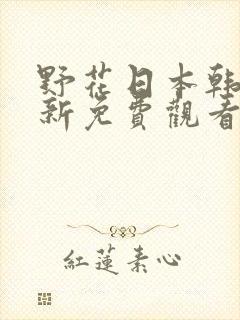 野花日本韩
新免費觀看
紅蓮素心